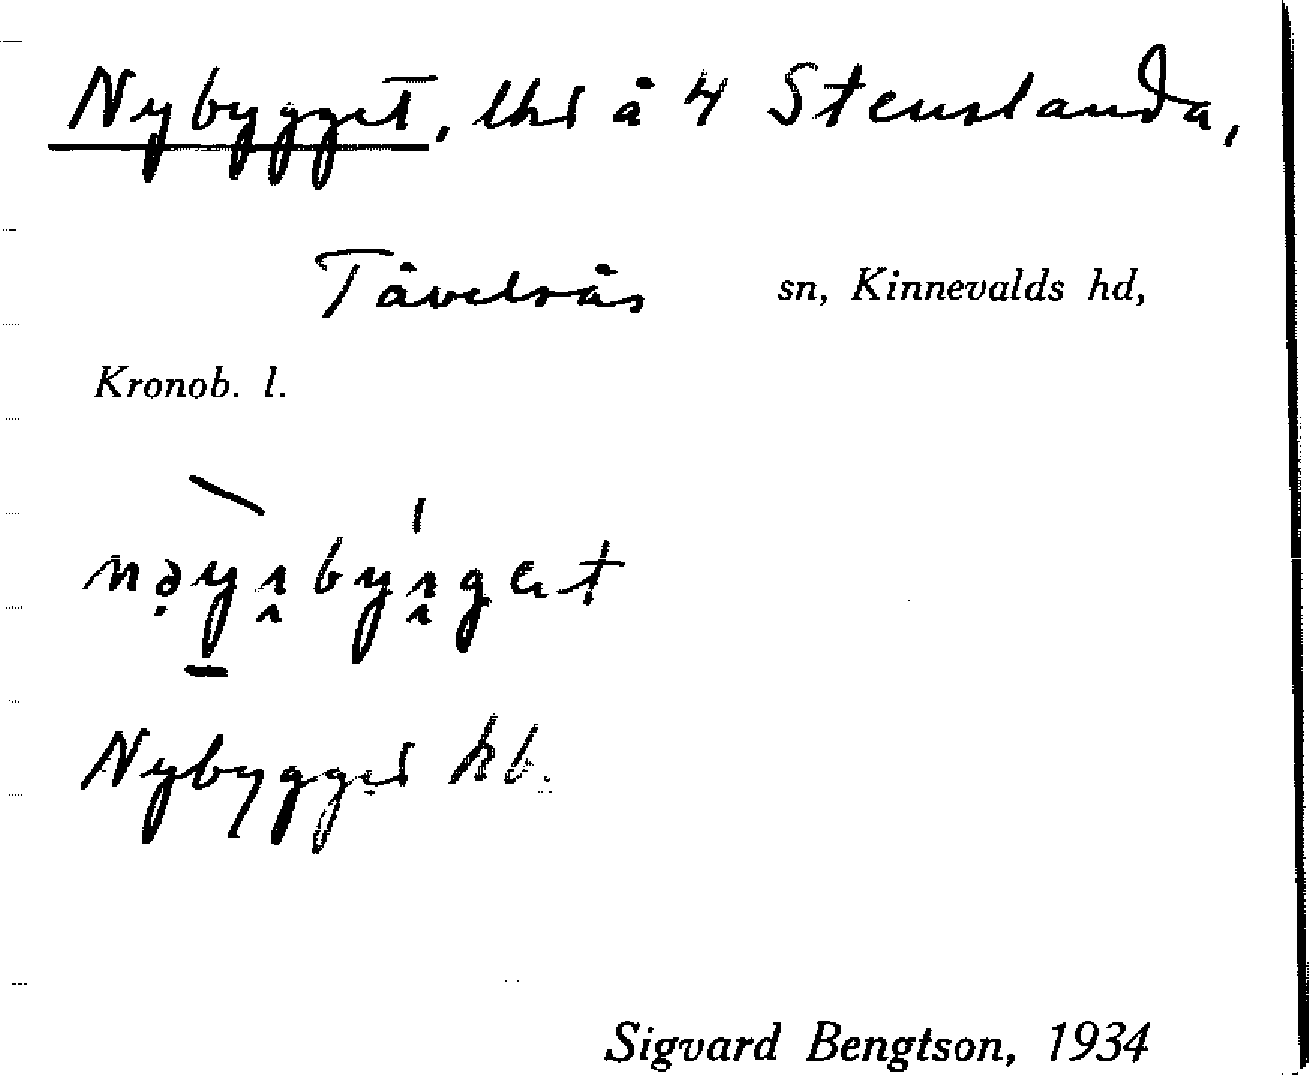 Nybygget, lht å 4 Stenslanda,
Tävelsås sn, Kinnevalds hd,
Kronob. l.
Nybygget hb.
Sigvard Bengtson, 1934